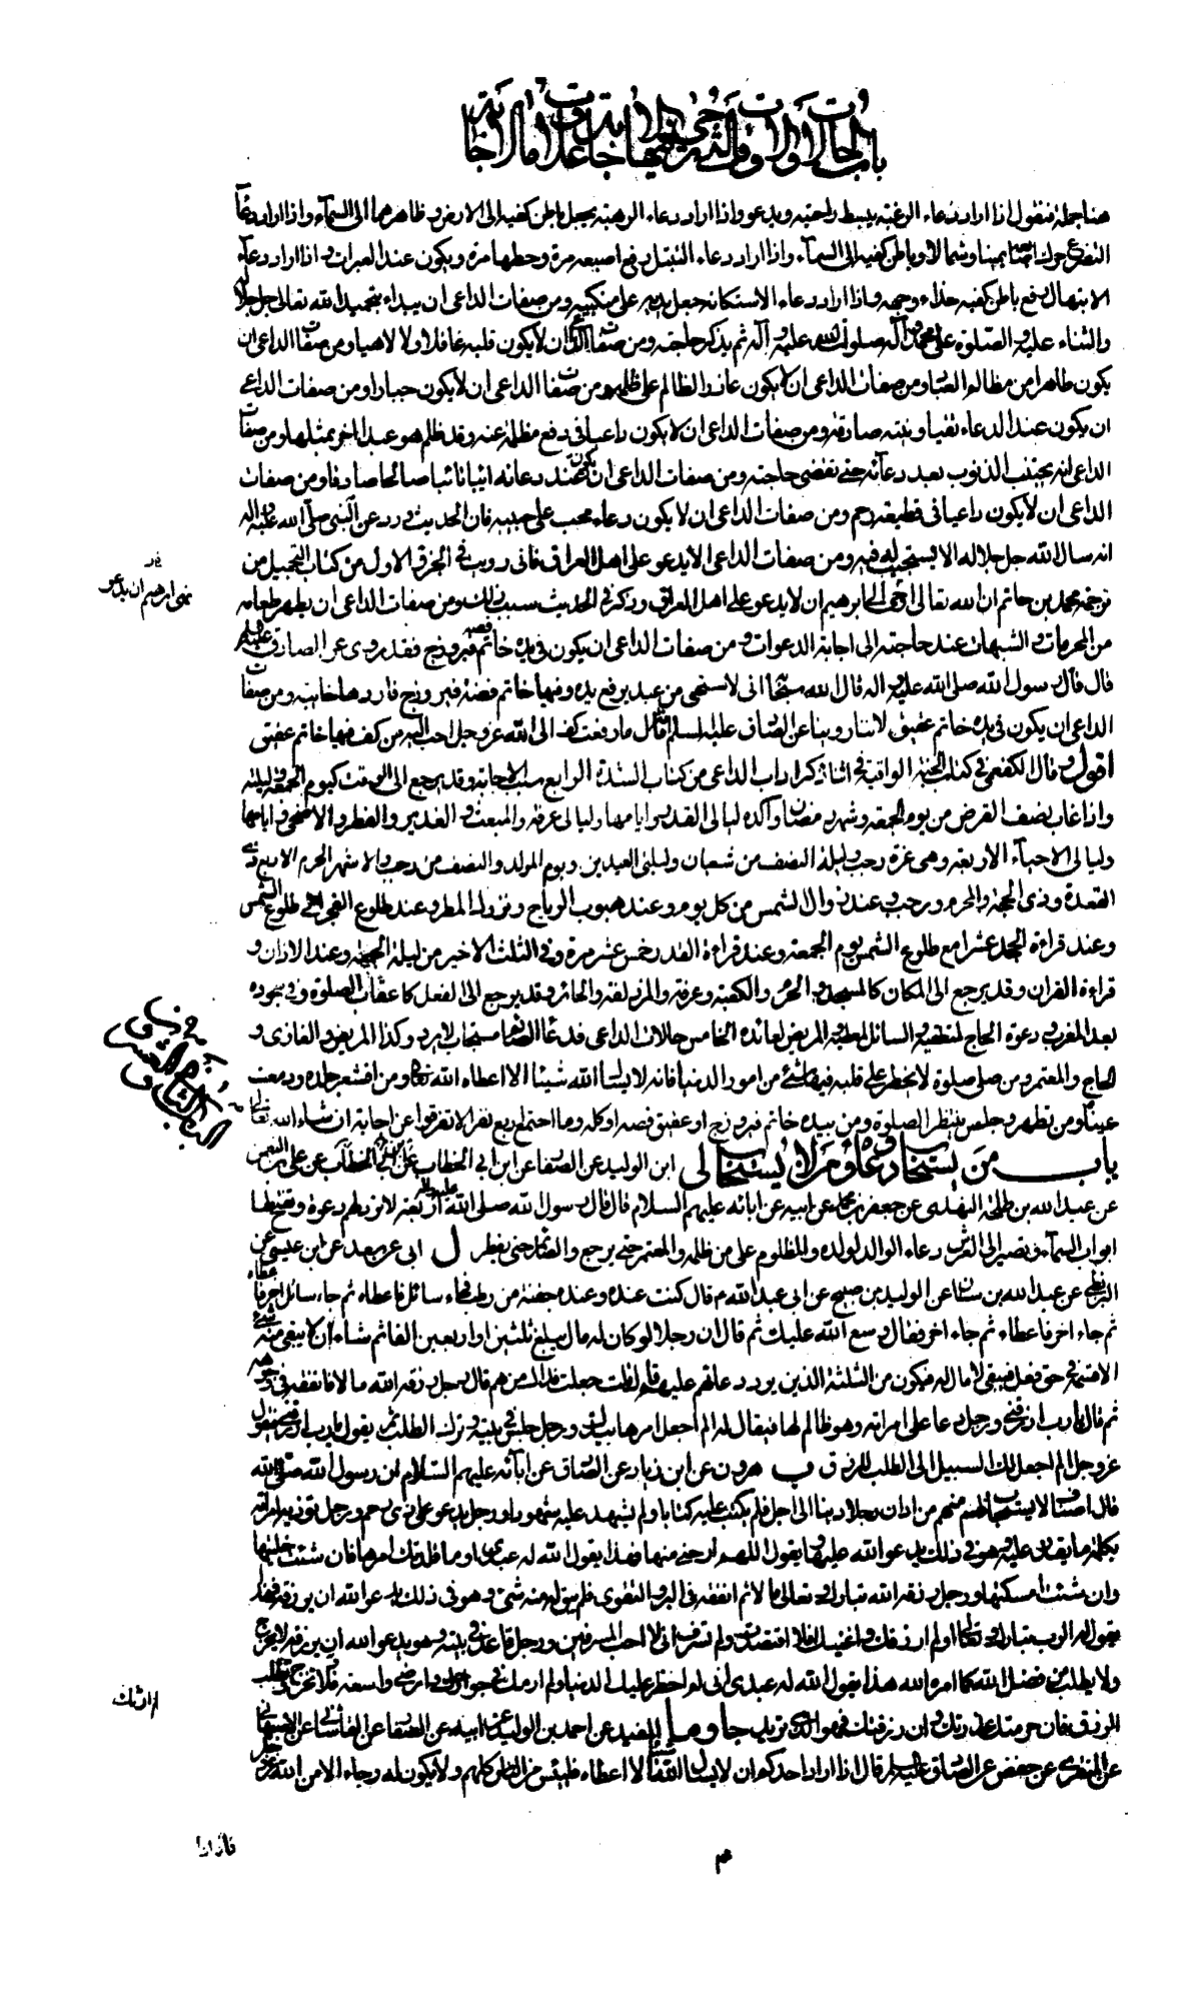 باب الحالات والاوقات التي يرجى فيها الاجابة وعلامات الاجابة
هنا جملة فنقول اذا اراد دعاء الرغبة يبسط راحتيه ويدعو واذا اراد دعاء الرهبة يجعل باطن كفيه الى الارض وظاهرهما الى السمآء واذا اراد دعآء
التضرع حرك اصابعه يمينا وشمالا وباطن كفيه الى السمآء واذا اراد دعاء التبتل رفع اصبعه مرة وحطها مرة ويكون عند العبرات واذا اراد دعآء
الابتهال رفع باطن كفيه حذاء وجهه واذا اراد دعاء الاستكانة جعل يديه على منكبيه ومن صفات الداعى ان يبداء بتحميد الله تعالى جل جلاله
والثناء عليه والصلوة على محمد وآله صلوات الله عليه وآله ثم يذكر حاجته ومن صفات الداعى ان لا يكون قلبه غافلا ولا لاهيا ومن صفات الداعى ان
يكون طاهرا من مظالم العباد ومن صفات الداعى ان لا يكون عاذرا لظالم على ظلمه ومن صفات الداعى ان لا يكون جبارا ومن صفات الداعى
ان يكون عند الدعاء تقيا ونيته صادقة ومن صفات الداعى ان لا يكون داعيا فى دفع مظلمة عنه وقد ظلم هو عبدا اخر بمثلها ومن صفات
الداعى انه يجتنب الذنوب بعد دعآئه حتى تقضى حاجته ومن صفات الداعى ان يكون عند دعائه ائبا تائبا صالحا صادقا ومن صفات
الداعى ان لا يكون داعيا فى قطيعة رحم ومن صفات الداعى ان لا يكون دعاء محب على حبيبه فان الحديث ورد عن النبى صلى الله عليه واله
انه سال الله جل جلاله الا يستجيب له فيه ومن صفات الداعى الا يدعو على اهل العراق فانى رويت فى الجزء الاول من كتاب التجميل من
ترجمة محمد بن حاتم ان الله تعالى اوحى الى ابرهيم ان لا يدعو على اهل العراق وذكر فى الحديث سبب ذلك ومن صفات الداعى ان يطهر طعامه
من المحرمات والشبهات عند حاجته الى اجابة الدعوات ومن صفات الداعى ان يكون فى يده خاتم فصه فيروزج فقد روى عن الصادق عليه السلم
قال قال رسول الله صلى الله عليه واله قال الله سبحانه انى لاستحيى من عبد يرفع يده وفيها خاتم فصه فيروزج فاردها خائبة ومن صفات
الداعى ان يكون فى يده خاتم عقيق لاننا روينا عن الصادق عليه السلم انه قال ما رفعت كف الى الله عز وجل احب اليه من كف فيها خاتم عقيق
اقول وقال الكفعمى فى كتاب الجنة الواقية فى اثناء ذكر اداب الداعى من كتاب السدة الرابع سبب الاجابة وقد يرجع الى الوقت كيوم الجمعة وليلته
واذا غاب نصف القرص من يوم الجمعة وشهر رمضان واكده ليالى القدر وايامها وليالى عرفة والمبعث والغدير والفطر والاضحى وايامها
وليالى الاحياء الاربعة وهى غرة رجب وليلة النصف من شعبان وليلتى العيدين ويوم المولد والنصف من رجب والاشهر الحرم الاربع ذى
القعدة وذى الحجة والمحرم ورجب وعند زوال الشمس من كل يوم وعند هبوب الرياح ونزول المطر وعند طلوع الفجر الى طلوع الشمس
وعند قراءة الجحد عشرا مع طلوع الشمس يوم الجمعة وعند قراءة القدر خمس عشر مرة وفى الثلث الاخير من ليلة الجمعة وعند الاذان و
قراءة القران وقد يرجع الى المكان كالمسجد والحرم والكعبة وعرفة والمزدلفة والحائر وقد يرجع الى الفعل كاعقاب الصلوة وفى سجوده
بعد المغرب ودعوة الحاج لمخلفيه والسائل لمعطيه والمريض لعائده الخامس حالات الداعى فدعاء الصائم مستجاب لا يرد وكذا المريض والغازى و
الحاج والمعتمر ومن صلى صلوة لا يخطر على قلبه فيها شئ من امور الدنيا فانه لا يسأل الله شيئا الا اعطاه الله تعالى ومن اقشعر جلده ودمعت
عيناه ومن تطهر وجلس ينتظر الصلوة ومن بيده خاتم فيروزج او عقيق فصه او كله وما اجتمع اربع نفر الا تفرقوا عن اجابة ان شاء الله تعالى
باب من يستجاب دعاؤه ومن لا يستجاب لى ابن الوليد عن الصفار عن ابن ابى الخطاب عن على بن النعمن
عن عبد الله بن طلحة النهدى عن جعفر بن محمد عن ابيه عن ابائه عليهم السلام قال قال رسول الله صلى الله عليه واله اربعة لا ترد لهم دعوة وتفتح لها
ابواب السمآء وتصير الى العرش دعاء الوالد لولده والمظلوم على من ظلمه والمعتمر حتى يرجع والصائم حتى يفطر ل ابى عن سعد عن ابن عيسى عن
البزنطى عن عبد الله بن سنان عن الوليد بن صبيح عن ابى عبد الله م قال كنت عنده وعنده جفنة من رطب فجاء سائل فاعطاه ثم جاء سائل اخر فاعطاه
ثم جاء اخر فاعطاه ثم جاء اخر فقال وسع الله عليك ثم قال ان رجلا لو كان له مال يبلغ ثلثين او اربعين الفا ثم شاء ان لا يبقى منه شئ
الا قسمه فى حق فعل فيبقى لا مال له فيكون من الثلثة الذين يرد دعاؤهم عليهم قال قلت جعلت فداك من هم قال رجل رزقه الله مالا فانفقه فى وجوهه
ثم قال يا رب ارزقنى ورجل دعا على امراته وهو ظالم لها فيقال له الم اجعل امرها بيدك ورجل جلس فى بيته وترك الطلب ثم يقول يا رب ارزقنى فيقول
عز وجل الم اجعل لك السبيل الى الطلب للرزق ب هرون عن ابن زياد عن الصادق عن ابآئه عليهم السلام ان رسول الله صلى الله
قال اصناف لا يستجاب لهم منهم من ادان رجلا دينا الى اجل فلم يكتب عليه كتابا ولم يشهد عليه شهودا ورجل يدعو على ذى رحم ورجل تؤذيه امراته
بكل ما تقدر عليه وهو فى ذلك يدعو الله عليها ويقول اللهم ارحنى منها فهذا يقول الله له عبدى او ما قلدتك امرها فان شئت خليتها
وان شئت امسكتها ورجل رزقه الله تبارك وتعالى مالا ثم انفقه فى البر والتقوى فلم يبق له منه شئ وهو فى ذلك يدعو الله ان يرزقه فهذا
يقول له الرب تبارك وتعالى اولم ارزقك واغنيك افلا اقتصدت ولم تسرف انى لا احب المسرفين ورجل قاعد فى بيته وهو يدعو الله ان يرزقه لا يخرج
ولا يطلب من فضل الله كما امره الله هذا يقول الله له عبدى انى لم احظر عليك الدنيا ولم ارمك فى جوارحك وارضى واسعة فلا تخرج وتطلب
الرزق فان حرمتك عذرتك وان رزقتك فهو الذى تريد جا وما المفيد عن احمد بن الوليد عن ابيه عن الصفار عن القاسانى عن الاصبهانى
عن المنقرى عن حفص عن الصادق عليه السلم قال اذا اراد احدكم ان لا يسال الله شيئا الا اعطاه فليئس من الناس كلهم ولا يكون له رجاء الا من الله عز وجل
نهى ابرهيم ان يدعو
فاذا